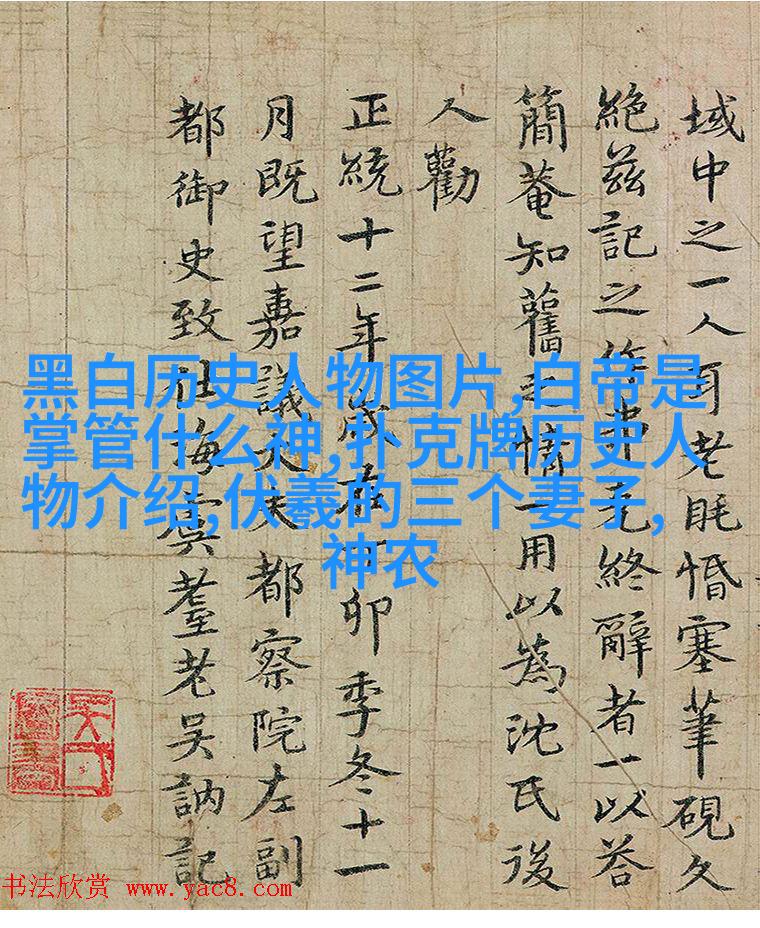 域中之一人耳老眊惛塞筆硯久
絶兹記之作弗克終辭者一以荅
簡菴知舊之情一用以為沈氏後
人勸
正統十二年歲在丁卯季冬十一
月既望嘉議大夫都察院左副
都御史致仕海虞耋老吳訥記
黑白历史人物图片,白帝是
掌管什么神,扑克牌历史人
物介绍,伏羲的三个妻子,
神农
书法欣赏 www.yac8.com